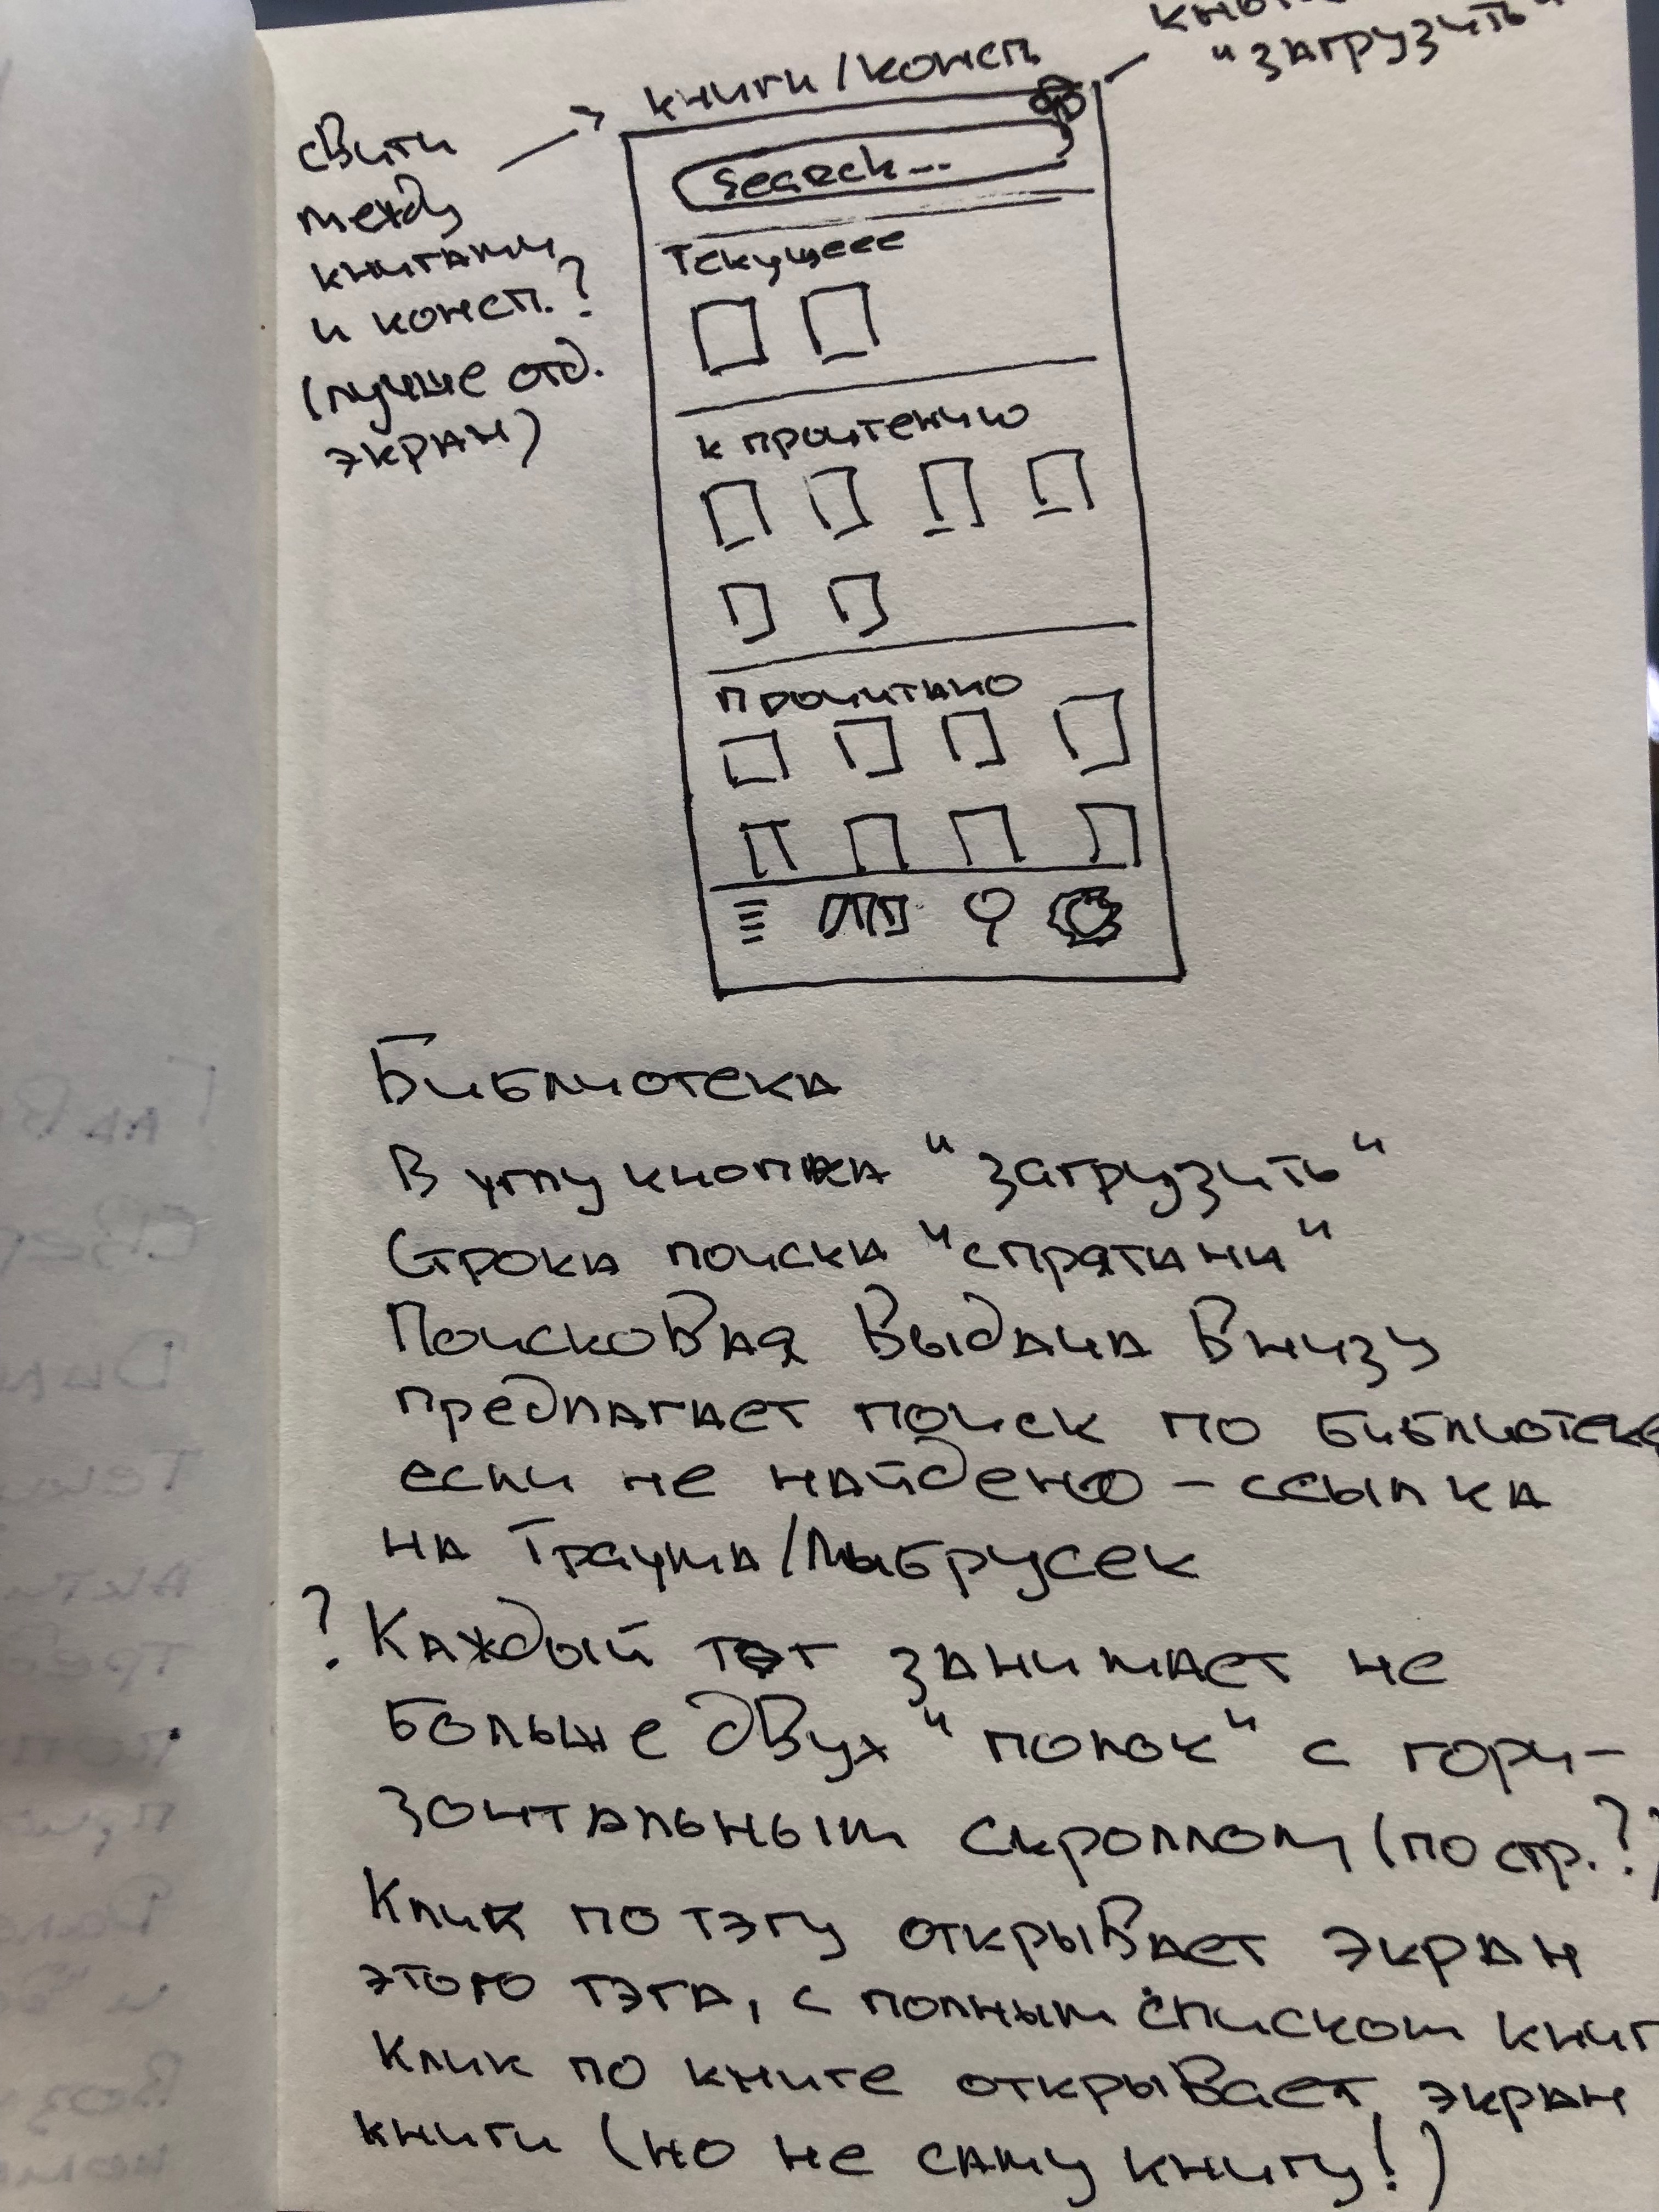 кно
"загрузить"
книги/консп
свитч
между
книгами
и консп.?
(лучше отд.
экран)
Search...
Текущеее
к прочтению
Прочитано
Библиотека
В углу кнопка "загрузить"
Строка поиска "спрятана"
Поисковая выдача внизу
предлагает поиск по библиотеке
если не найдено – ссылка
на Траума/Мыбрусек
? Каждый тэг занимает не
больше двух "полок" с гори-
зонтальным скроллом (по стр.?)
Клик по тэгу открывает экран
этого тэга, с полным списком книг
Клик по книге открывает экран
книги (но не саму книгу!)